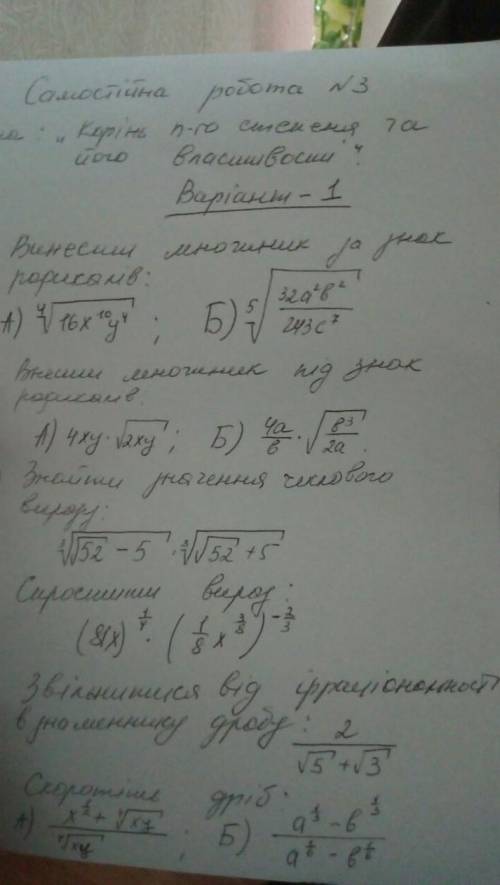 Самостійна робота №3
на: „Корінь n-го степеня та
його властивості".
Варіант - 1
Винести множник за знак
радикалів:
А) ⁴√(16x¹⁰y⁴) ; Б) ⁵√(32a²b² / 243c⁷)
Внести множник під знак
радикалів.
А) 4xy · √(2xy) ; Б) 4a/b · √(b³/2a).
Знайти значення числового
виразу:
³√(√52 - 5) · ³√(√52 + 5)
Спростити вираз:
(81x)^(1/4) · (1/8 x^(3/8))^(-2/3)
Звільнитися від ірраціональності
в знаменнику дробу: 2 / (√5 + √3)
Скоротіть дріб:
А) ; Б) (a^(1/3) - b^(1/3)) / (a^(1/6) - b^(1/6))